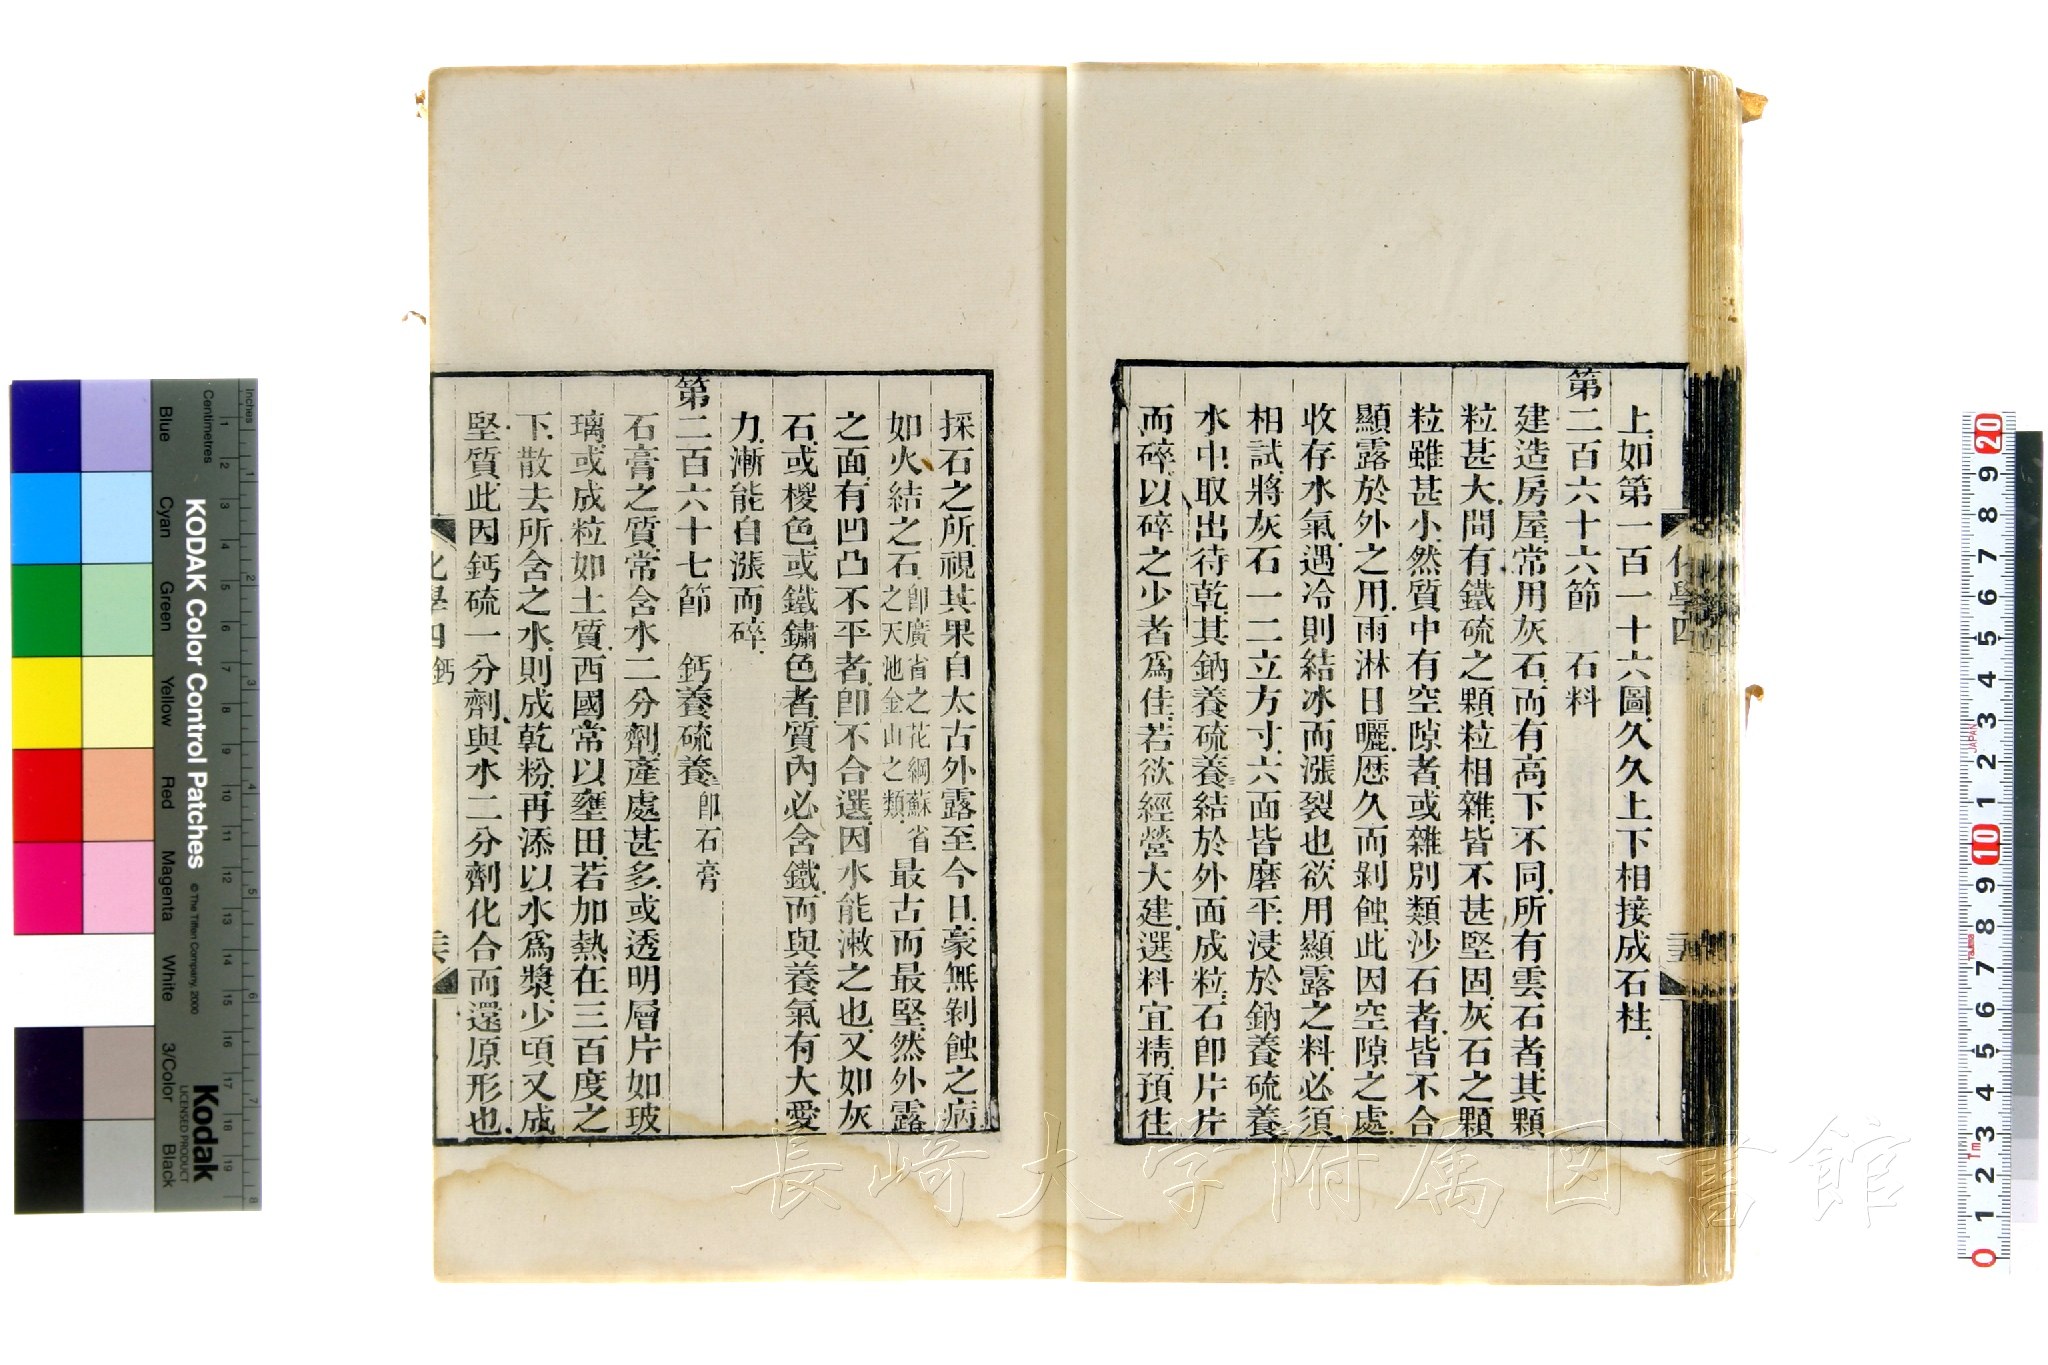 上、如第一百一十六圖、久久上下相接、成石柱、
第二百六十六節　石料
建造房屋、常用灰石、而有高下不同、所有雲石者、其顆
粒甚大、間有鐵硫之顆粒相雜、皆不甚堅固、灰石之顆
粒雖甚小、然質中有空隙者、或雜別類沙石者、皆不合
顯露於外之用、雨淋日曬、歷久而剝蝕、此因空隙之處、
收存水氣、遇冷則結冰而漲裂也、欲用顯露之料、必須
相試、將灰石一二立方寸、六面皆磨平、浸於鈉養硫養
水中、取出待乾、其鈉養硫養結於外面成粒、石卽片片
而碎、以碎之少者爲佳、若欲經營大建、選料宜精、預往
化學四
採石之所、視其果自太古外露至今日、豪無剝蝕之病、
如火結之石、卽廣省之花綱蘇省之天池金山之類、最古而最堅、然外露
之面、有凹凸不平者、卽不合選、因水能潄之也、又如灰
石、或椶色、或鐵鏽色者、質內必含鐵、而與養氣有大愛
力、漸能自漲而碎、
第二百六十七節　鈣養硫養卽石膏
石膏之質、常含水二分劑、產處甚多、或透明層片如玻
璃、或成粒如土質、西國常以壅田、若加熱在三百度之
下、散去所含之水、則成乾粉、再添以水爲漿、少頃又成
堅質、此因鈣硫一分劑、與水二分劑化合而還原形也、
化學四 鈣
長崎大学附属図書館
KODAK Color Control Patches
©The Tiffen Company, 2000
Kodak
LICENSED PRODUCT
Blue Cyan Green Yellow Red Magenta White 3/Color Black
Inches 1 2 3 4 5 6 7 8
Centimetres 1 2 3 4 5 6 7 8 9 10 11 12 13 14 15 16 17 18 19
20 9 8 7 6 5 4 3 2 1 10 9 8 7 6 5 4 3 2 1 0
JAPAN